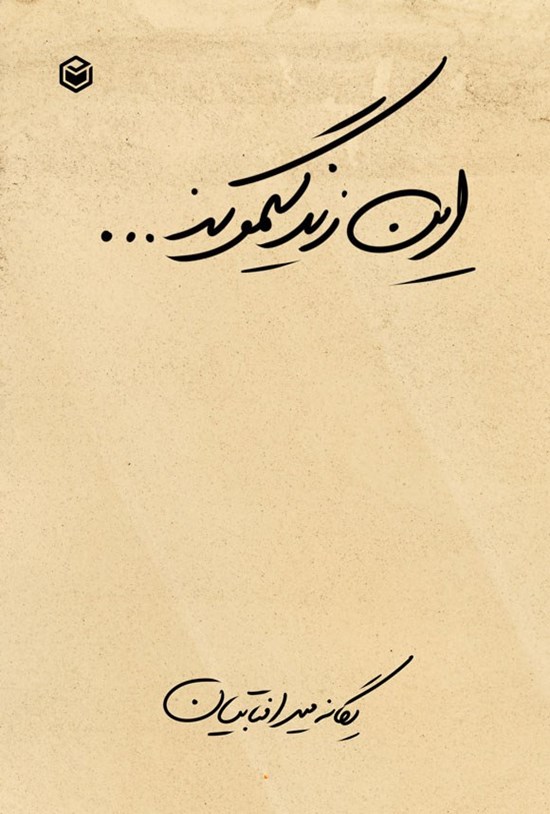 این زندگیمونه...
یگانه میرافتابیان